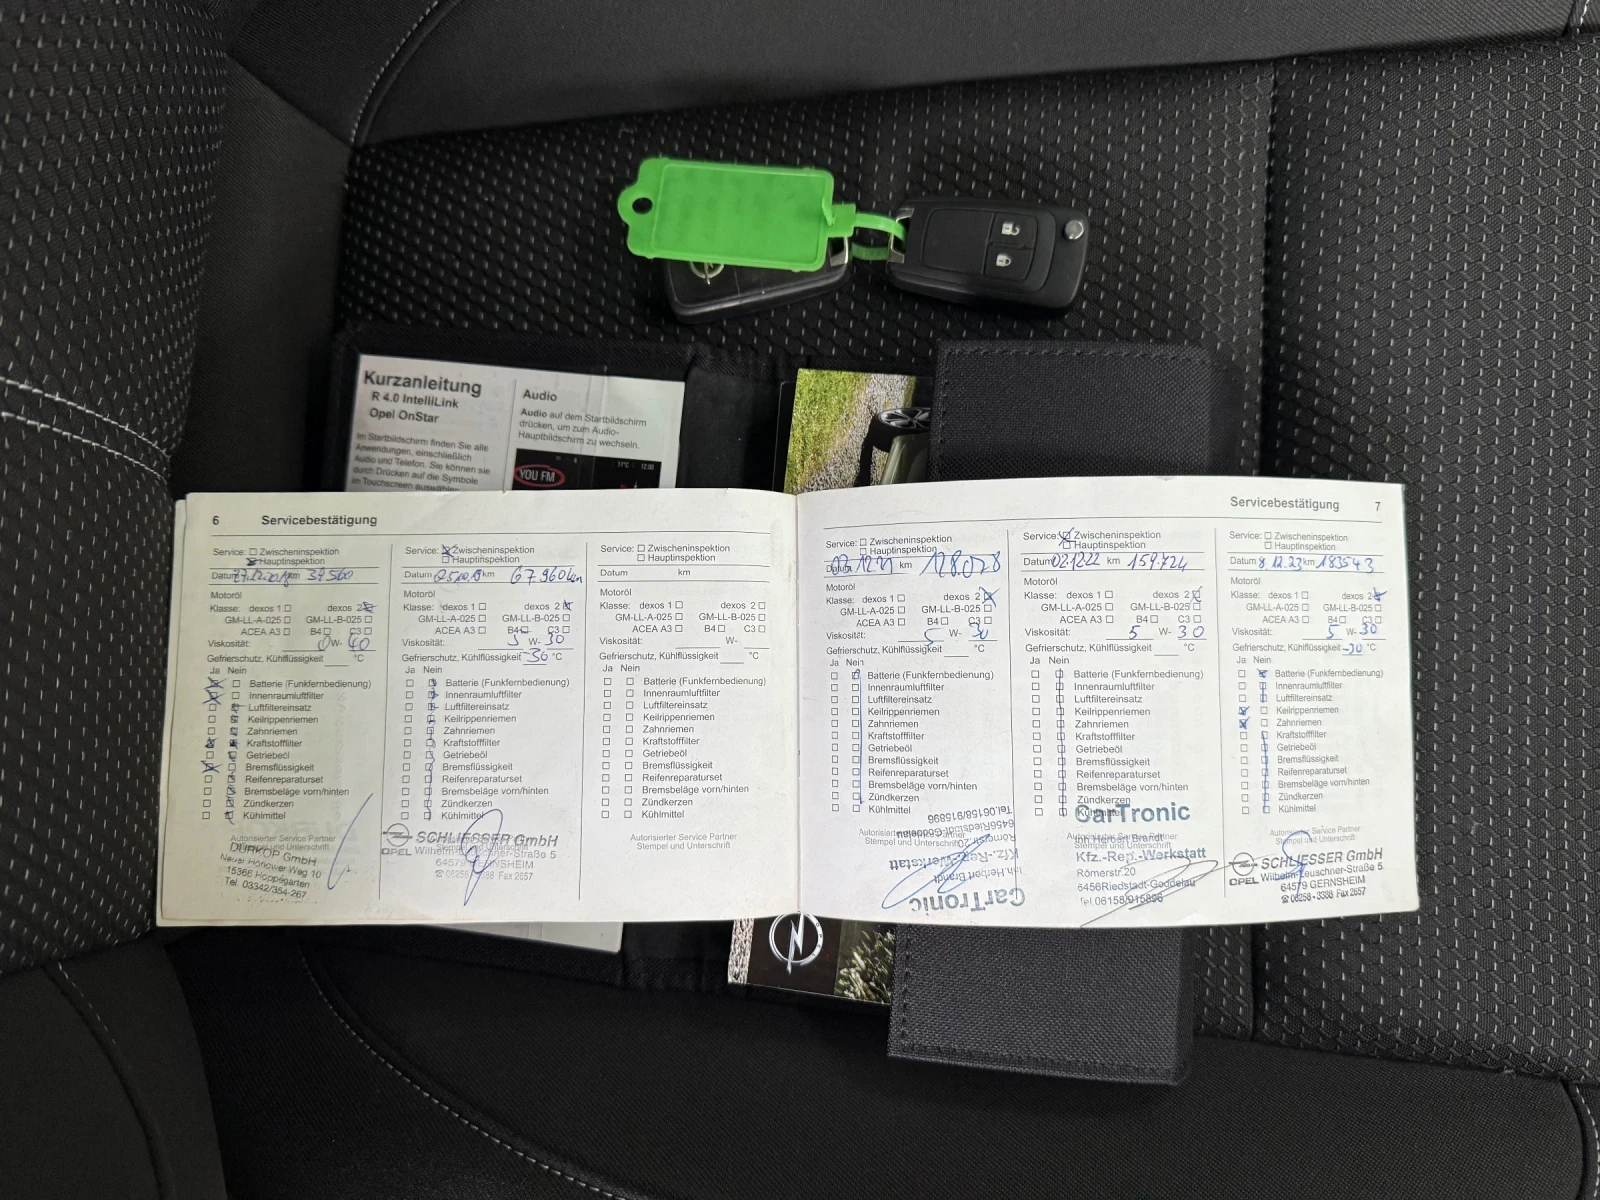 Kurzanleitung
R 4.0 IntelliLink
Opel OnStar
Im Startbildschirm finden Sie alle
Anwendungen, einschließlich
Audio und Telefon. Sie können sie
durch Drücken auf die Symbole
im Touchscreen auswählen
Audio
Audio auf dem Startbildschirm
drücken, um zum Audio-
Hauptbildschirm zu wechseln.
17°C 12:00
YOU FM
6 Servicebestätigung
Service: Zwischeninspektion
Hauptinspektion
Datum km 39560
Motoröl
Klasse: dexos 1 dexos 2
GM-LL-A-025 GM-LL-B-025
ACEA A3 B4 C3
Viskosität: 0 W- 40
Gefrierschutz, Kühlflüssigkeit °C
Ja Nein
Batterie (Funkfernbedienung)
Innenraumluftfilter
Luftfiltereinsatz
Keilrippenriemen
Zahnriemen
Kraftstofffilter
Getriebeöl
Bremsflüssigkeit
Reifenreparaturset
Bremsbeläge vorn/hinten
Zündkerzen
Kühlmittel
Autorisierter Service Partner
Stempel und Unterschrift
DÜRKOP GmbH
Neuer Hönower Weg 10
15366 Hoppegarten
Tel. 03342/354-267
Service: Zwischeninspektion
Hauptinspektion
Datum km 67.960km
Motoröl
Klasse: dexos 1 dexos 2
GM-LL-A-025 GM-LL-B-025
ACEA A3 B4 C3
Viskosität: 5 W- 30
Gefrierschutz, Kühlflüssigkeit -30 °C
Ja Nein
Batterie (Funkfernbedienung)
Innenraumluftfilter
Luftfiltereinsatz
Keilrippenriemen
Zahnriemen
Kraftstofffilter
Getriebeöl
Bremsflüssigkeit
Reifenreparaturset
Bremsbeläge vorn/hinten
Zündkerzen
Kühlmittel
Autorisierter Service Partner
Stempel und Unterschrift
OPEL SCHLIESSER GmbH
Wilhelm-Leuschner-Straße 5
64579 GERNSHEIM
☎ 06258 - 3388 Fax 2657
Service: Zwischeninspektion
Hauptinspektion
Datum km
Motoröl
Klasse: dexos 1 dexos 2
GM-LL-A-025 GM-LL-B-025
ACEA A3 B4 C3
Viskosität: W-
Gefrierschutz, Kühlflüssigkeit °C
Ja Nein
Batterie (Funkfernbedienung)
Innenraumluftfilter
Luftfiltereinsatz
Keilrippenriemen
Zahnriemen
Kraftstofffilter
Getriebeöl
Bremsflüssigkeit
Reifenreparaturset
Bremsbeläge vorn/hinten
Zündkerzen
Kühlmittel
Autorisierter Service Partner
Stempel und Unterschrift
Servicebestätigung 7
Service: Zwischeninspektion
Hauptinspektion
Datum 03.12.21 km 128.078
Motoröl
Klasse: dexos 1 dexos 2
GM-LL-A-025 GM-LL-B-025
ACEA A3 B4 C3
Viskosität: 5 W- 30
Gefrierschutz, Kühlflüssigkeit °C
Ja Nein
Batterie (Funkfernbedienung)
Innenraumluftfilter
Luftfiltereinsatz
Keilrippenriemen
Zahnriemen
Kraftstofffilter
Getriebeöl
Bremsflüssigkeit
Reifenreparaturset
Bremsbeläge vorn/hinten
Zündkerzen
Kühlmittel
Autorisierter Service Partner
Stempel und Unterschrift
CarTronic
Inh. Herbert Brandt
Kfz.-Rep.-Werkstatt
Römerstr.20
6456Riedstadt-Goddelau
Tel.06158/915896
Service: Zwischeninspektion
Hauptinspektion
Datum 02.12.22 km 159.724
Motoröl
Klasse: dexos 1 dexos 2
GM-LL-A-025 GM-LL-B-025
ACEA A3 B4 C3
Viskosität: 5 W- 30
Gefrierschutz, Kühlflüssigkeit °C
Ja Nein
Batterie (Funkfernbedienung)
Innenraumluftfilter
Luftfiltereinsatz
Keilrippenriemen
Zahnriemen
Kraftstofffilter
Getriebeöl
Bremsflüssigkeit
Reifenreparaturset
Bremsbeläge vorn/hinten
Zündkerzen
Kühlmittel
CarTronic
Autorisierter Service Partner
Inh. Herbert Brandt
Kfz.-Rep.-Werkstatt
Römerstr.20
6456Riedstadt-Goddelau
Tel.06158/915896
Service: Zwischeninspektion
Hauptinspektion
Datum 8.12.23 km 183543
Motoröl
Klasse: dexos 1 dexos 2
GM-LL-A-025 GM-LL-B-025
ACEA A3 B4 C3
Viskosität: 5 W- 30
Gefrierschutz, Kühlflüssigkeit -30 °C
Ja Nein
Batterie (Funkfernbedienung)
Innenraumluftfilter
Luftfiltereinsatz
Keilrippenriemen
Zahnriemen
Kraftstofffilter
Getriebeöl
Bremsflüssigkeit
Reifenreparaturset
Bremsbeläge vorn/hinten
Zündkerzen
Kühlmittel
Autorisierter Service Partner
Stempel und Unterschrift
OPEL SCHLIESSER GmbH
Wilhelm-Leuschner-Straße 5
64579 GERNSHEIM
☎ 06258 - 3388 Fax 2657